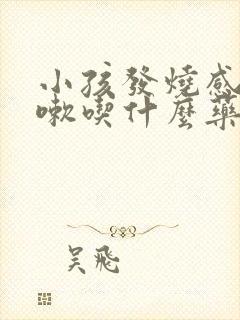 小孩發燒感
嗽喫什麼藥
吳飛